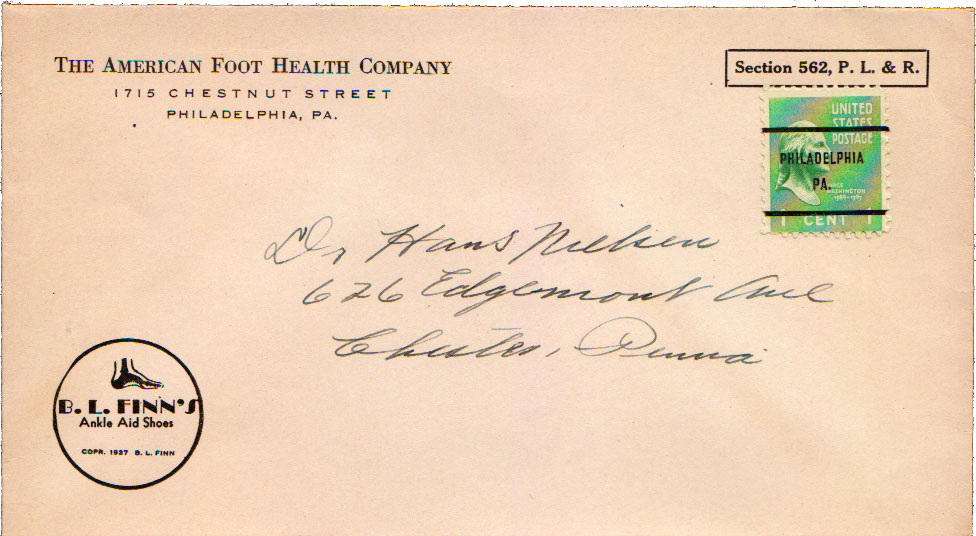 THE AMERICAN FOOT HEALTH COMPANY
1715 CHESTNUT STREET
PHILADELPHIA, PA.
Section 562, P. L. & R.
UNITED
STATES
POSTAGE
PHILADELPHIA
PA.
WASHINGTON
1789-1797
1 CENT 1
Dr Hans Nielsen
626 Edgemont Ave
Chester, Penna
B. L. FINN'S
Ankle Aid Shoes
COPR. 1937 B. L. FINN